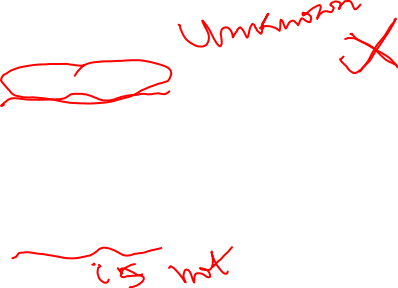 Unknown X
is not